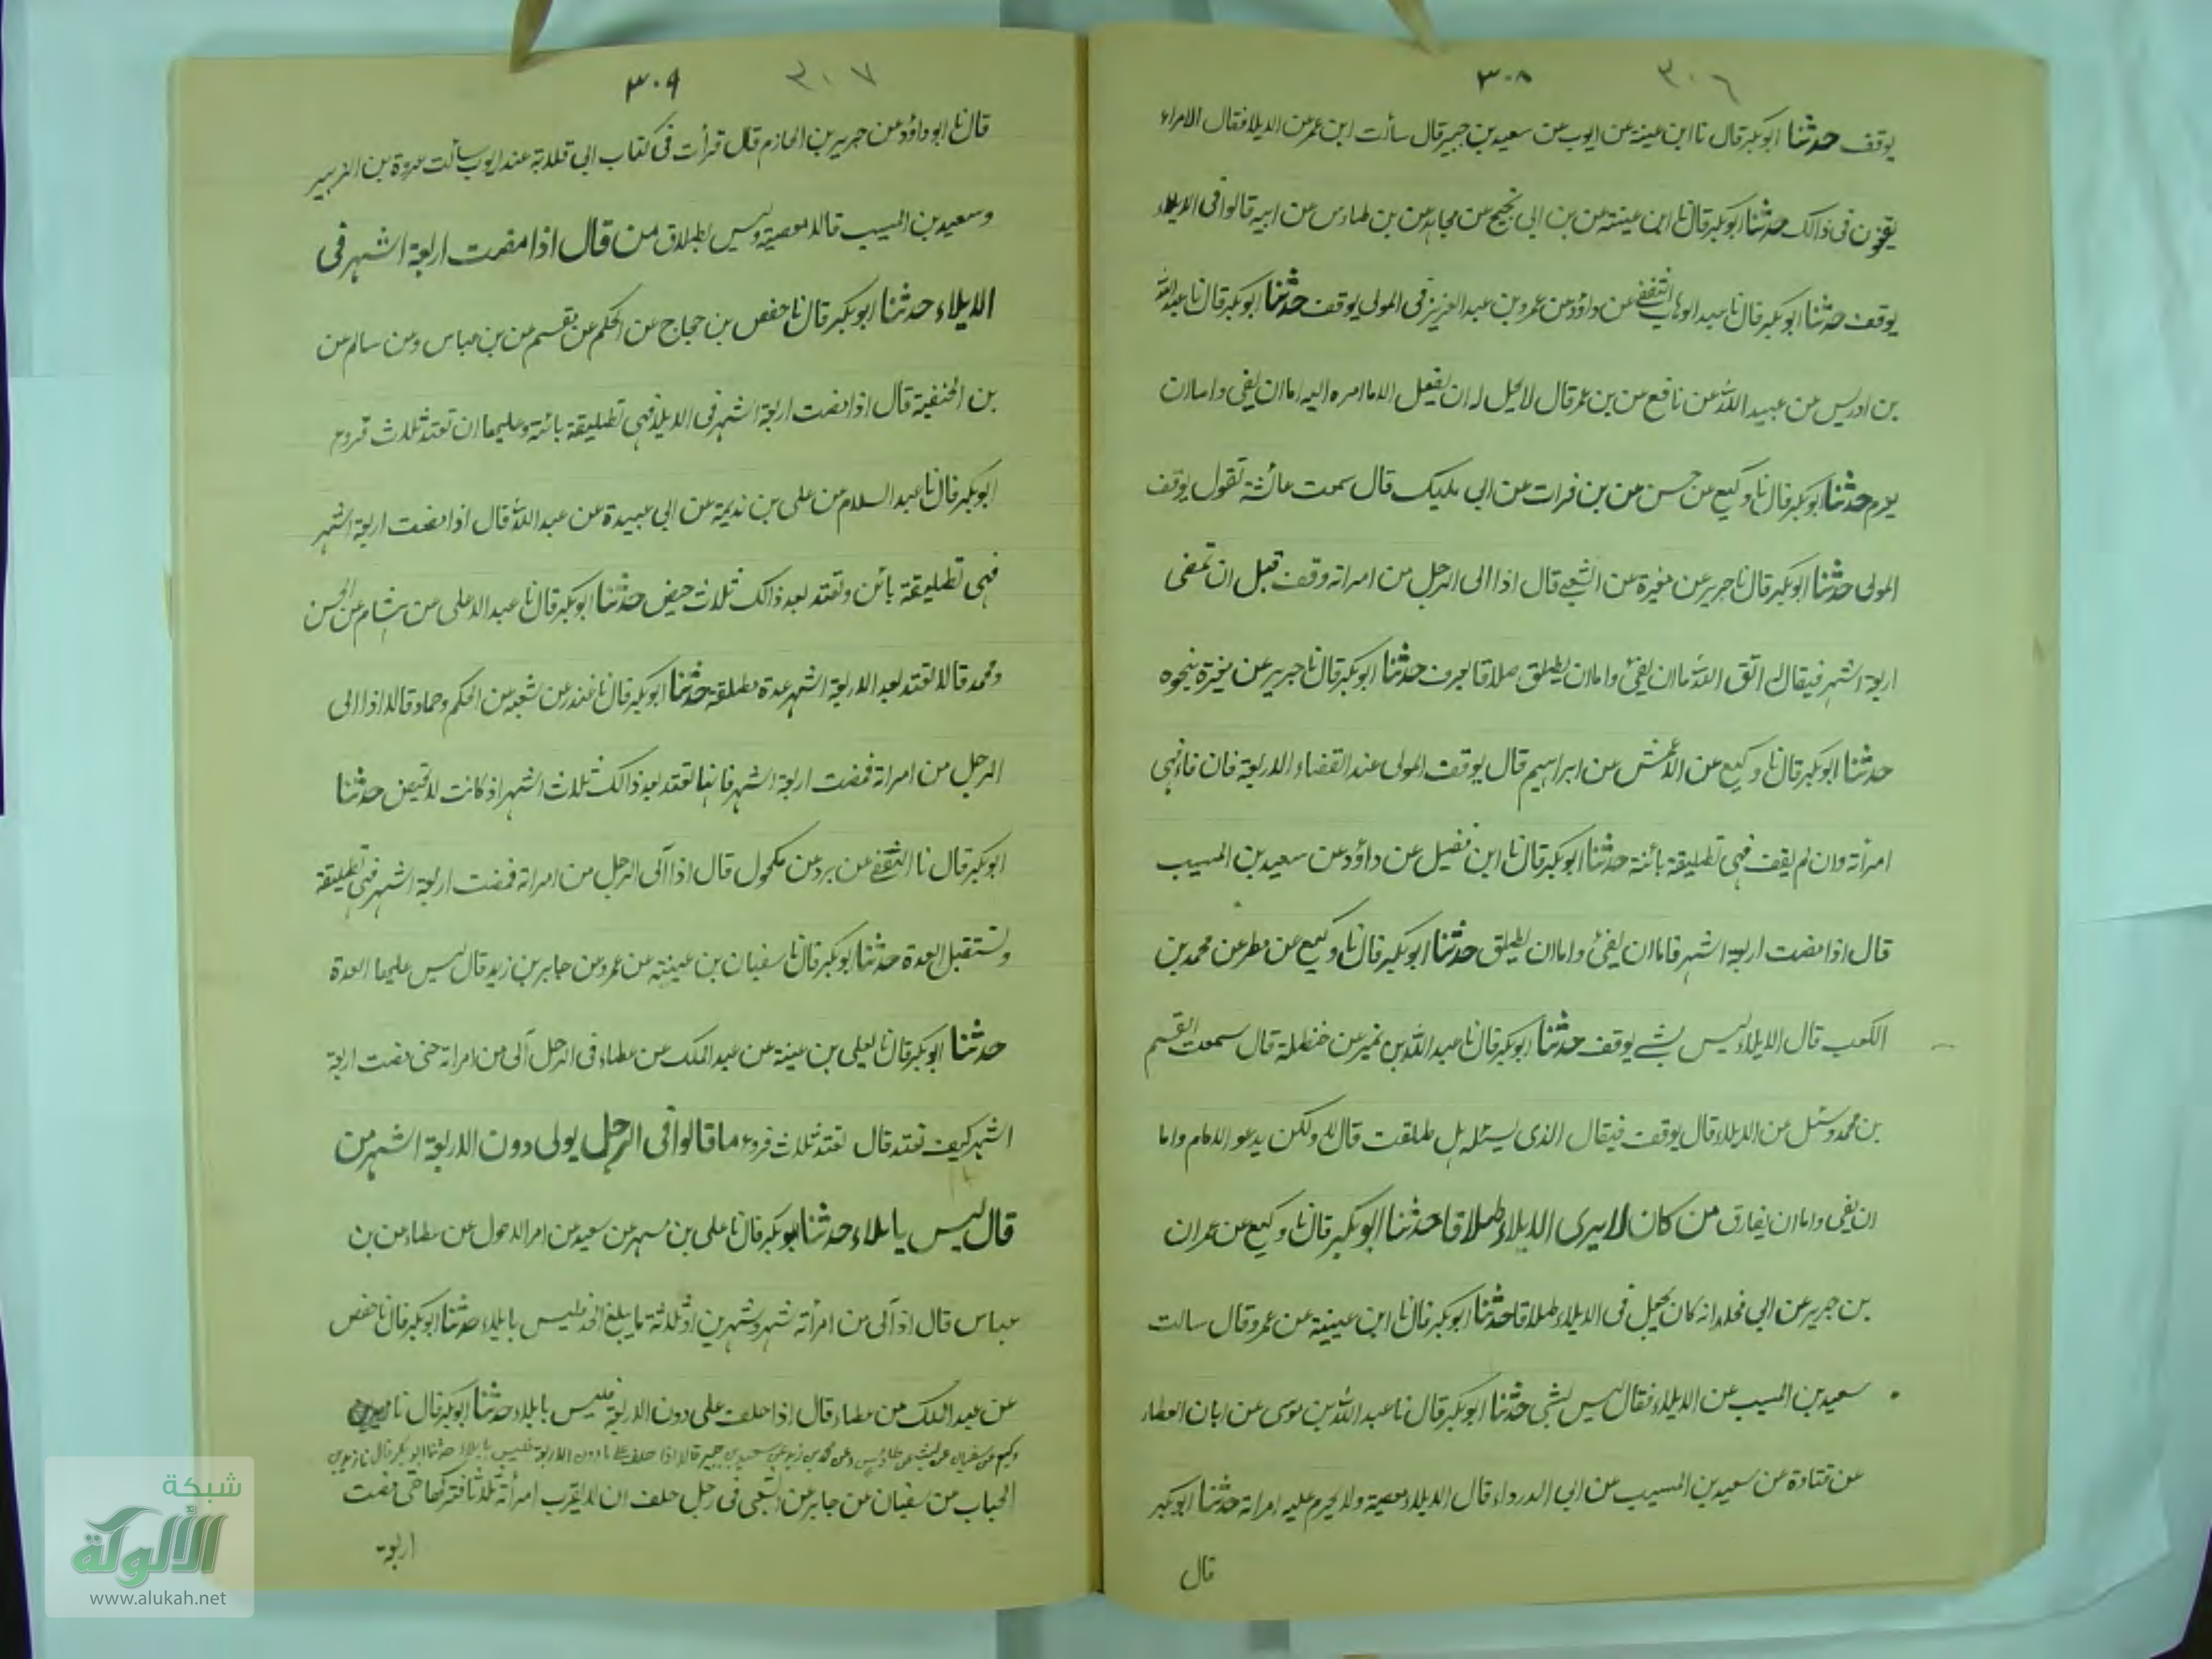 ٣٠٦
٣٠٨
يوقف حدثنا ابوبكر قال نا ابن عينة عن ايوب عن سعيد بن جبير قال سألت ابن عمر عن الايلا فقال الامراء
يقضون فى ذالك حدثنا ابوبكر قال نا ابن عينة عن بن ابى نجيح عن مجاهد عن بن طاوس عن ابيه قالوا فى الايلاء
يوقف حدثنا ابوبكر قال نا عبد الوهاب الثقفى عن داؤد عن عمر بن عبد العزيز فى المولى يوقف حدثنا ابوبكر قال نا عبد الله
بن ادريس عن عبيد الله عن نافع عن بن عمر قال لا يحل له ان يفعل الا ما امره اليه اما ان يفى واما ان
يعزم حدثنا ابوبكر قال نا وكيع عن حسن عن بن فرات عن ابى مليك قال سمعت عائشة تقول يوقف
المولى حدثنا ابوبكر قال نا جرير عن مغيرة عن الشعبى قال اذا الى الرجل من امراته وقف قبل ان تمضى
اربعة اشهر فيقال له اتق الله اما ان يفئ واما ان يطلق طلاقا يعرف حدثنا ابوبكر قال نا جرير عن مغيرة بنحوه
حدثنا ابوبكر قال نا وكيع عن الاعمش عن ابراهيم قال يوقف المولى عند انقضاء الاربعة فان فاء فهى
امرأته وان لم يقف فهى تطليقة بائنة حدثنا ابوبكر قال نا ابن فضيل عن داؤد عن سعيد بن المسيب
قال اذا مضت اربعة اشهر فاما ان يفئ واما ان يطلق حدثنا ابوبكر قال نا وكيع عن مطر عن محمد بن
الكعب قال الايلاء ليس بشے يوقف حدثنا ابوبكر قال نا عبد الله بن نمير عن حنظلة قال سمعت القسم
بن محمد وسئل عن الايلاء قال يوقف فيقال الذى يسئله هل طلقت قال لا ولكن يدعو الامام واما
ان يفى واما ان يفارق من كان لا يرى الايلاء طلاقا حدثنا ابوبكر قال نا وكيع عن عمران
بن جرير عن ابى مخلد انه كان يجعل فى الايلاء طلاقا حدثنا ابوبكر قال نا ابن عيينة عن عمرو قال سالت
سعيد بن المسيب عن الايلاء فقال ليس بشى حدثنا ابوبكر قال نا عبد الله بن موسى عن ابان العطار
عن قتادة عن سعيد بن المسيب عن ابى الدرداء قال الايلاء معصية ولا يحرم عليه امراته حدثنا ابوبكر
قال
٣٠٧
٣٠٩
قال نا ابو داؤد عن جرير بن الحازم قال قرأت فى كتاب ابى قلابة عند ايوب سألت عروة بن الزبير
وسعيد بن المسيب قالا معصية وليس بطلاق من قال اذا مضت اربعة اشهر فى
الايلاء حدثنا ابوبكر قال نا حفص بن حجاج عن الحكم عن مقسم عن بن عباس وعن سالم عن
بن الحنفية قال اذا مضت اربعة اشهر فى الايلا فهى تطليقة بائنة وعليها ان تعتد ثلاث قروح
ابوبكر قال نا عبد السلام عن على بن نديمة عن ابى عبيدة عن عبد الله قال اذا مضت اربعة اشهر
فهى تطليقة بائن وتعتد بعد ذالك ثلاث حيض حدثنا ابوبكر قال نا عبد الاعلى عن هشام عن الحسن
ومحمد قالا تعتد بعد الاربعة اشهر عدة مطلقة حدثنا ابوبكر قال نا غندر عن شعبة عن الحكم وحماد قالا اذا الى
الرجل من امراته فمضت اربعة اشهر فانها تعتد بعد ذالك ثلاث اشهر اذ كانت لا تحيض حدثنا
ابوبكر قال نا الثقفى عن برد عن مكحول قال اذا آلى الرجل من امراته فمضت اربعة اشهر فهى تطليقة
وتستقبل العدة حدثنا ابوبكر قال نا سفيان بن عيينة عن عمرو عن جابر بن زيد قال ليس عليها العدة
حدثنا ابوبكر قال نا يعلى بن عينة عن عبد الملك عن عطاء فى الرجل آلى من امراته حتى مضت اربعة
اشهر كيف تعتد قال تعتد ثلاث قروء ما قالوا فى الرجل يولى دون الاربعة اشهر من
قال ليس بايلاء حدثنا ابوبكر قال نا على بن مسهر عن سعيد عن امر الاحول عن عطاء عن بن
عباس قال اذ آلى من امرأته شهر وشهرين او ثلاثة ما يبلغ الحد فليس بايلاء حدثنا ابوبكر قال نا حفص
عن عبد الملك عن عطاء قال اذا حلف على دون الاربعة فليس بايلاء حدثنا ابوبكر قال نا
وكيع عن سفيان عن ليث عن طاؤس وعن سعيد بن جبير قالا اذا حلف على ما دون الاربعة فليس بايلاء حدثنا ابوبكر قال نا زيد بن
الحباب عن سفيان عن جابر عن الشعبى فى رجل حلف ان لا يقرب امرأته ثلاثا فتركها حتى مضت
اربعة
شبكة
الألوكة
www.alukah.net